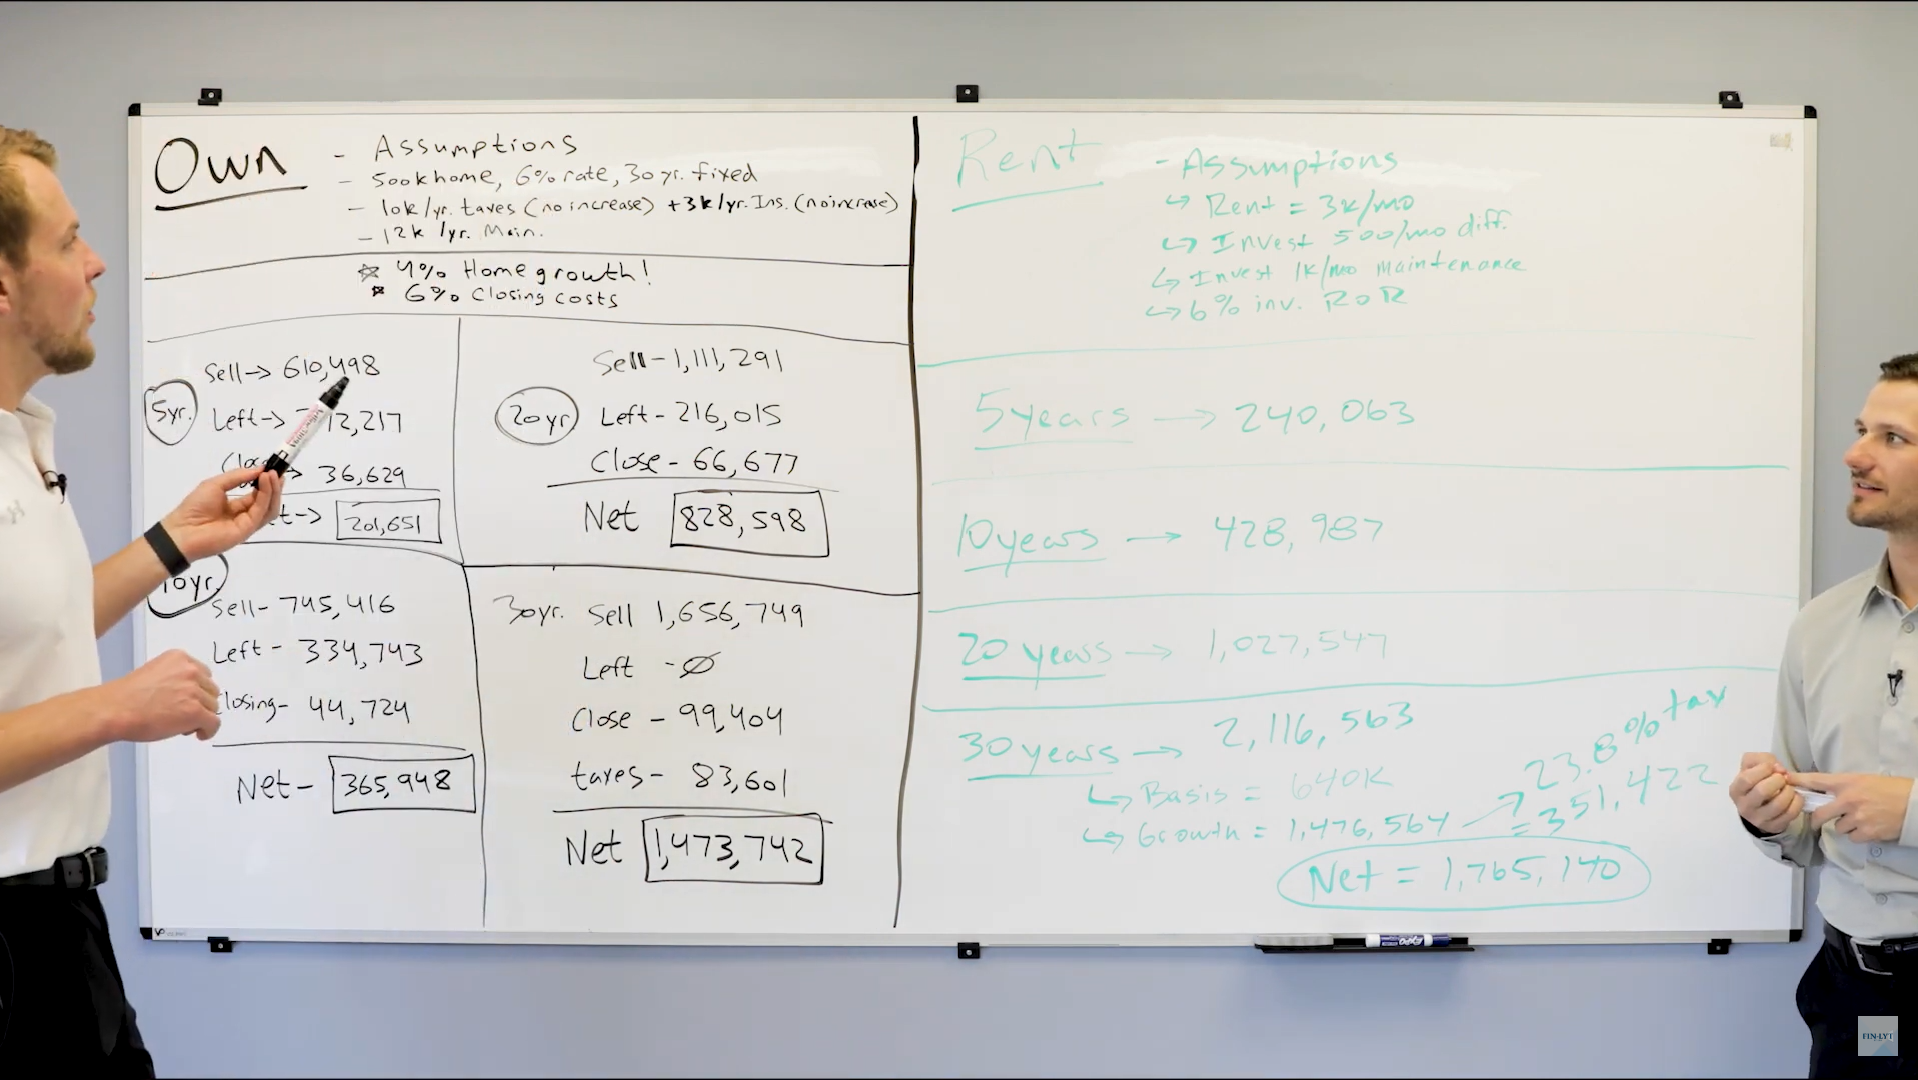 Own
- Assumptions
- 500k home, 6% rate, 30 yr. fixed
- 10k/yr. taxes (no increase) +3k/yr. Ins. (no increase)
- 12k /yr. Main.
☆ 4% Home growth!
* 6% Closing costs
5yr.
Sell → 610,498
Left → 2,217
36,629
→ 201,651
20 yr
Sell - 1,111,291
Left - 216,015
Close - 66,677
Net 828,598
10 yr.
Sell - 745,416
Left - 334,743
Closing - 44,724
Net - 365,948
30 yr. Sell 1,656,749
Left - Ø
Close - 99,404
taxes - 83,601
Net 1,473,742
Rent
- Assumptions
↳ Rent = 3k/mo
↳ Invest 500/mo diff.
↳ Invest 1k/mo Maintenance
↳ 6% inv. RoR
5 years → 240,063
10 years → 428,987
20 years → 1,027,547
30 years → 2,116,563
↳ Basis = 640K
↳ Growth = 1,476,564 → 23.8% tax
= 351,422
Net = 1,765,140
EXPO
FIN-LYT